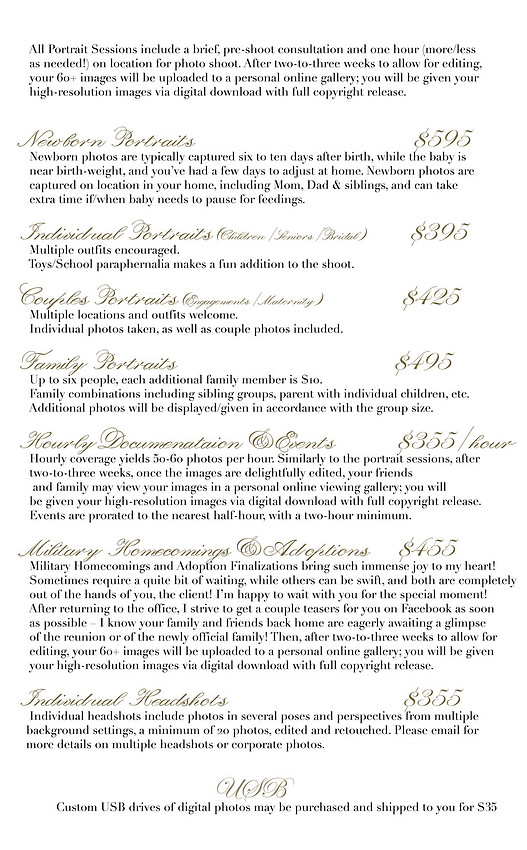 All Portrait Sessions include a brief, pre-shoot consultation and one hour (more/less
as needed!) on location for photo shoot. After two-to-three weeks to allow for editing,
your 60+ images will be uploaded to a personal online gallery; you will be given your
high-resolution images via digital download with full copyright release.
Newborn Portraits $595
Newborn photos are typically captured six to ten days after birth, while the baby is
near birth-weight, and you've had a few days to adjust at home. Newborn photos are
captured on location in your home, including Mom, Dad & siblings, and can take
extra time if/when baby needs to pause for feedings.
Individual Portraits (Children/Seniors/Bridal) $395
Multiple outfits encouraged.
Toys/School paraphernalia makes a fun addition to the shoot.
Couples Portraits (Engagements/Maternity) $425
Multiple locations and outfits welcome.
Individual photos taken, as well as couple photos included.
Family Portraits $495
Up to six people, each additional family member is $10.
Family combinations including sibling groups, parent with individual children, etc.
Additional photos will be displayed/given in accordance with the group size.
Hourly Documenataion & Events $355/hour
Hourly coverage yields 50-60 photos per hour. Similarly to the portrait sessions, after
two-to-three weeks, once the images are delightfully edited, your friends
and family may view your images in a personal online viewing gallery; you will
be given your high-resolution images via digital download with full copyright release.
Events are prorated to the nearest half-hour, with a two-hour minimum.
Military Homecomings & Adoptions $455
Military Homecomings and Adoption Finalizations bring such immense joy to my heart!
Sometimes require a quite bit of waiting, while others can be swift, and both are completely
out of the hands of you, the client! I'm happy to wait with you for the special moment!
After returning to the office, I strive to get a couple teasers for you on Facebook as soon
as possible – I know your family and friends back home are eagerly awaiting a glimpse
of the reunion or of the newly official family! Then, after two-to-three weeks to allow for
editing, your 60+ images will be uploaded to a personal online gallery; you will be given
your high-resolution images via digital download with full copyright release.
Individual Headshots $355
Individual headshots include photos in several poses and perspectives from multiple
background settings, a minimum of 20 photos, edited and retouched. Please email for
more details on multiple headshots or corporate photos.
USB
Custom USB drives of digital photos may be purchased and shipped to you for $35